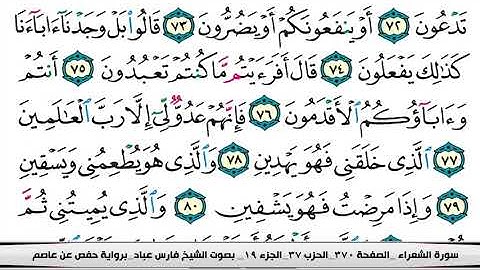 تَدْعُونَ ٧٢ أَوْ يَنفَعُونَكُمْ أَوْ يَضُرُّونَ ٧٣ قَالُوا۟ بَلْ وَجَدْنَآ ءَابَآءَنَا
كَذَٰلِكَ يَفْعَلُونَ ٧٤ قَالَ أَفَرَءَيْتُم مَّا كُنتُمْ تَعْبُدُونَ ٧٥ أَنتُمْ
وَءَابَآؤُكُمُ ٱلْأَقْدَمُونَ ٧٦ فَإِنَّهُمْ عَدُوٌّ لِّىٓ إِلَّا رَبَّ ٱلْعَٰلَمِينَ
٧٧ ٱلَّذِى خَلَقَنِى فَهُوَ يَهْدِينِ ٧٨ وَٱلَّذِى هُوَ يُطْعِمُنِى وَيَسْقِينِ
٧٩ وَإِذَا مَرِضْتُ فَهُوَ يَشْفِينِ ٨٠ وَٱلَّذِى يُمِيتُنِى ثُمَّ
سورة الشعراء _الصفحة ٣٧٠_ الحزب ٣٧_ الجزء ١٩ _ بصوت الشيخ فارس عباد_ برواية حفص عن عاصم